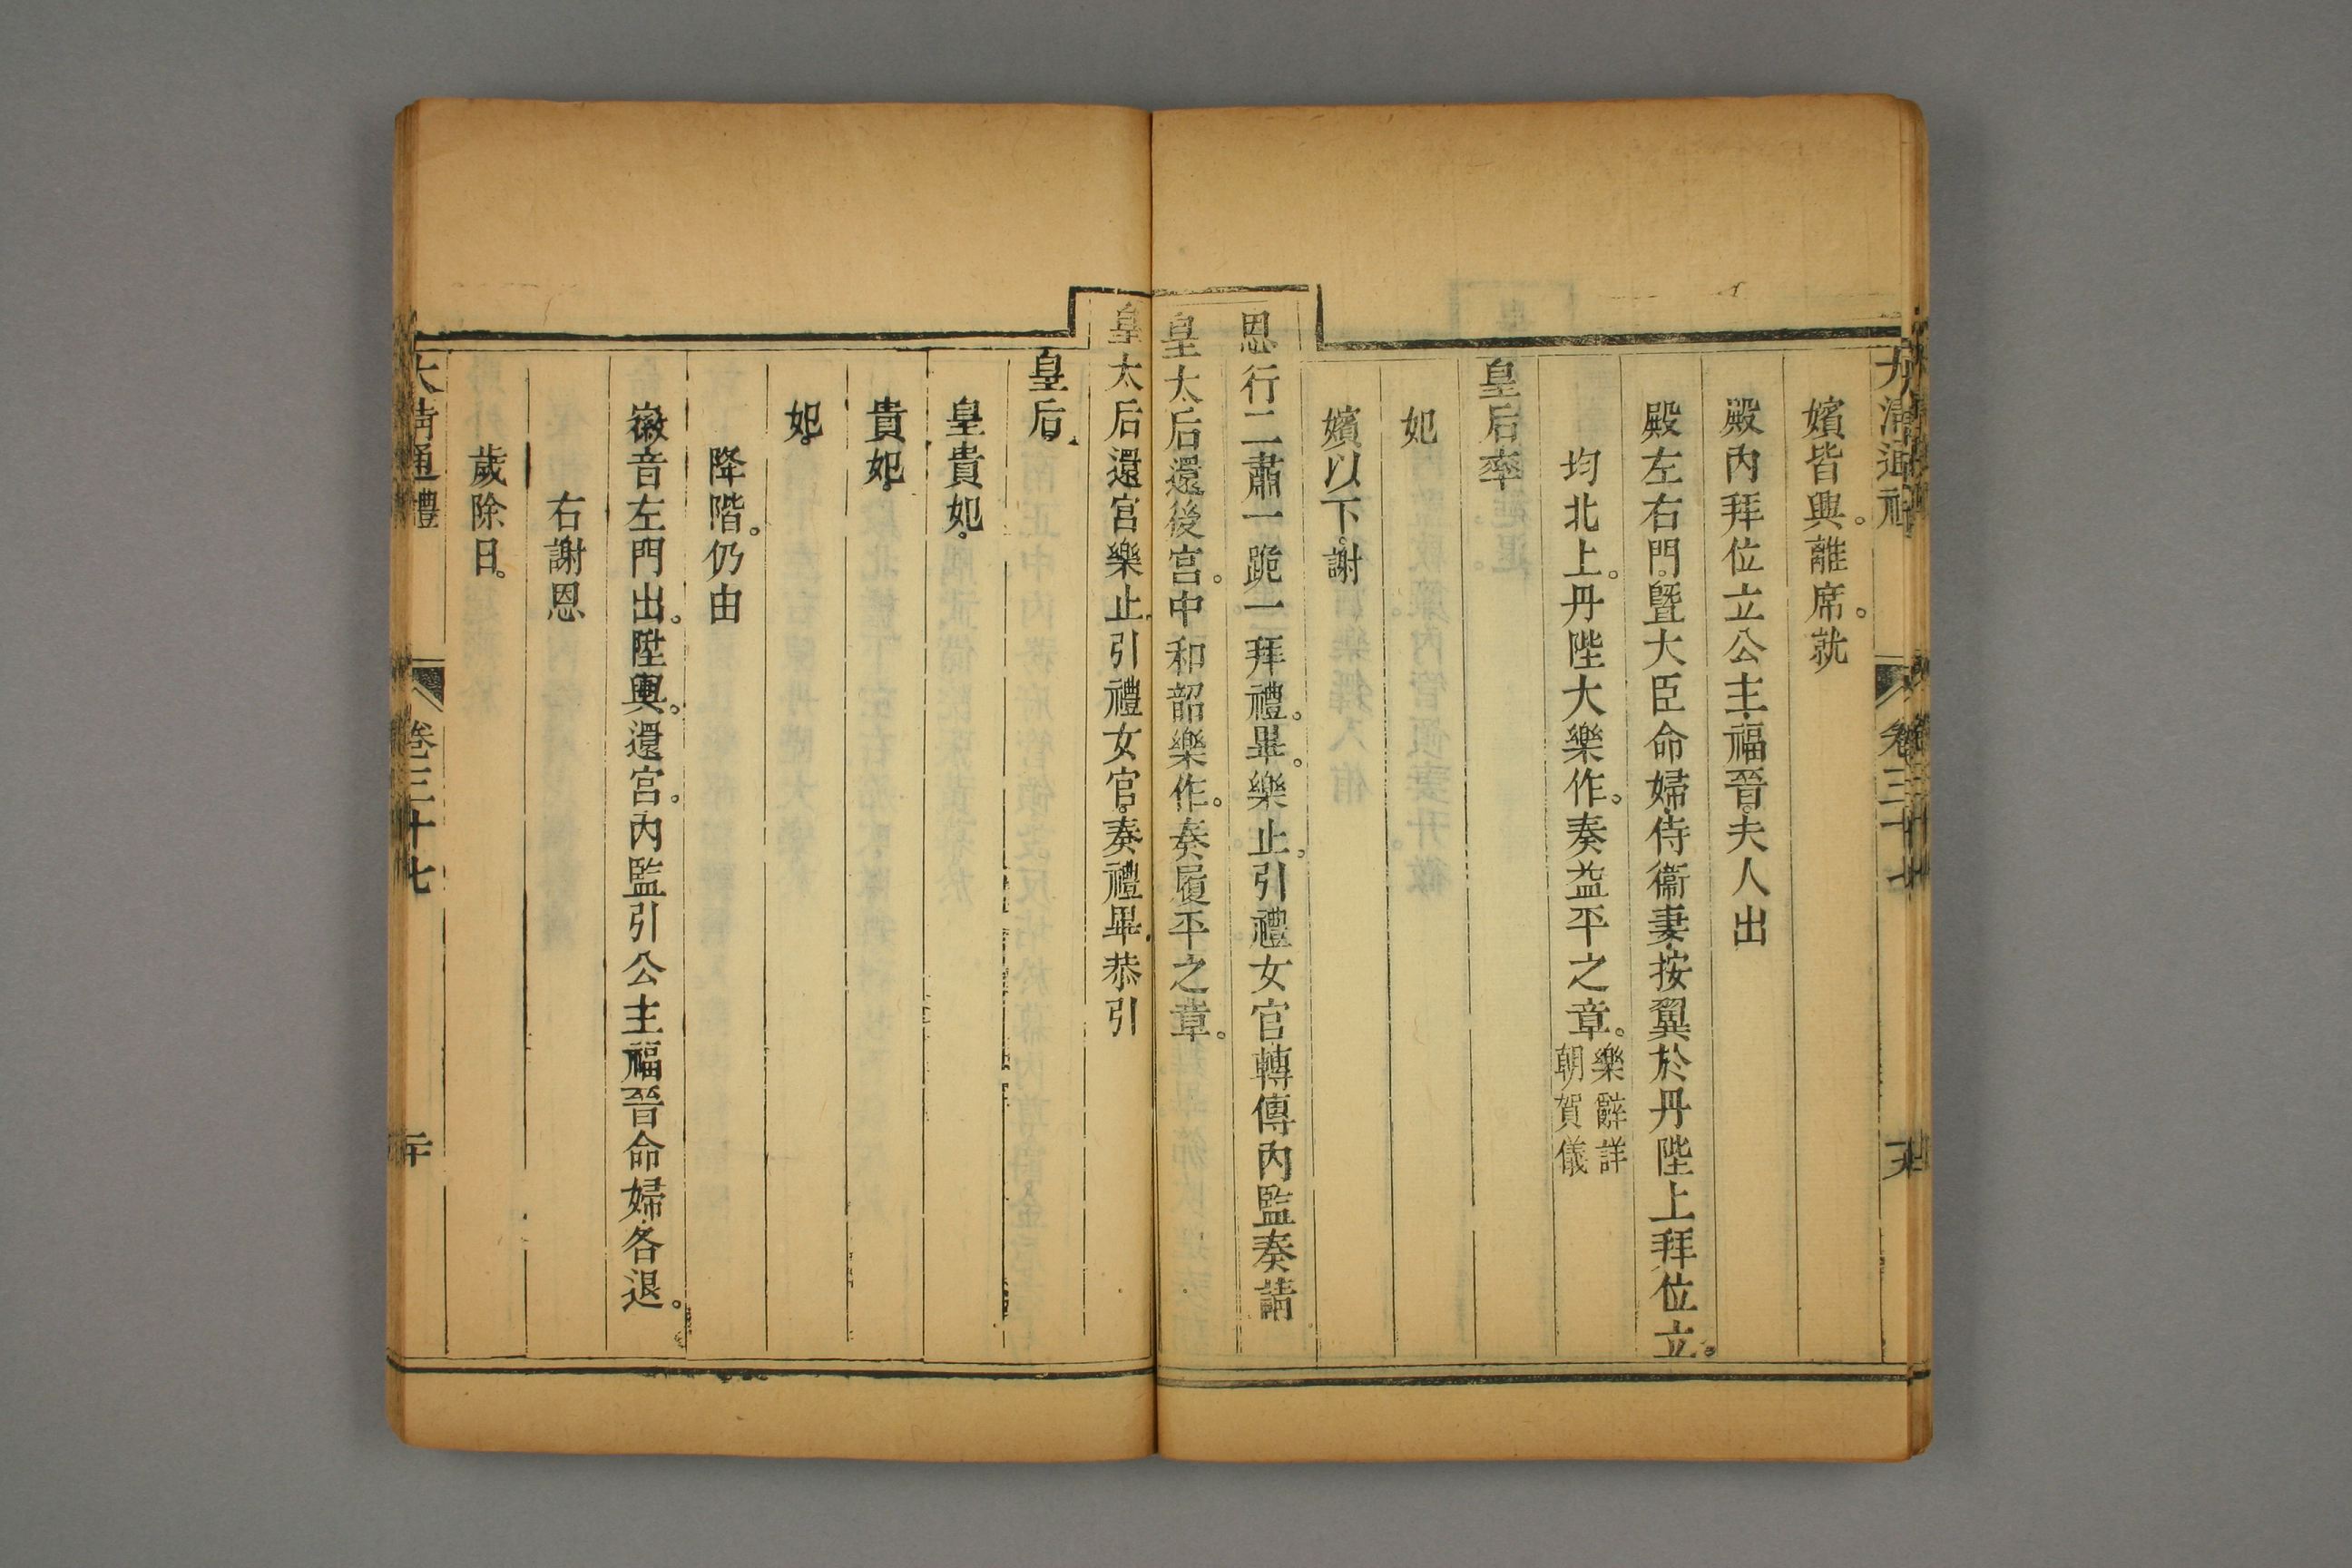 大清通禮 卷三十七
嬪皆興。離席。就
殿內拜位立公主福晉夫人出
殿左右門暨大臣命婦侍衞妻按翼於丹陛上拜位立。
均北上。丹陛大樂作。奏益平之章。樂辭詳朝賀儀
皇后率
妃
嬪以下。謝
恩行二肅一跪一拜禮。畢。樂止。引禮女官轉傳內監奏請
皇太后還後宮。中和韶樂作。奏履平之章。
皇太后還宮樂止引禮女官奏禮畢恭引
皇后
皇貴妃。
貴妃
妃
降階。仍由
徽音左門出。陞輿。還宮。內監引公主福晉命婦各退。
右謝恩
歲除日。
大清通禮 卷三十七 二十